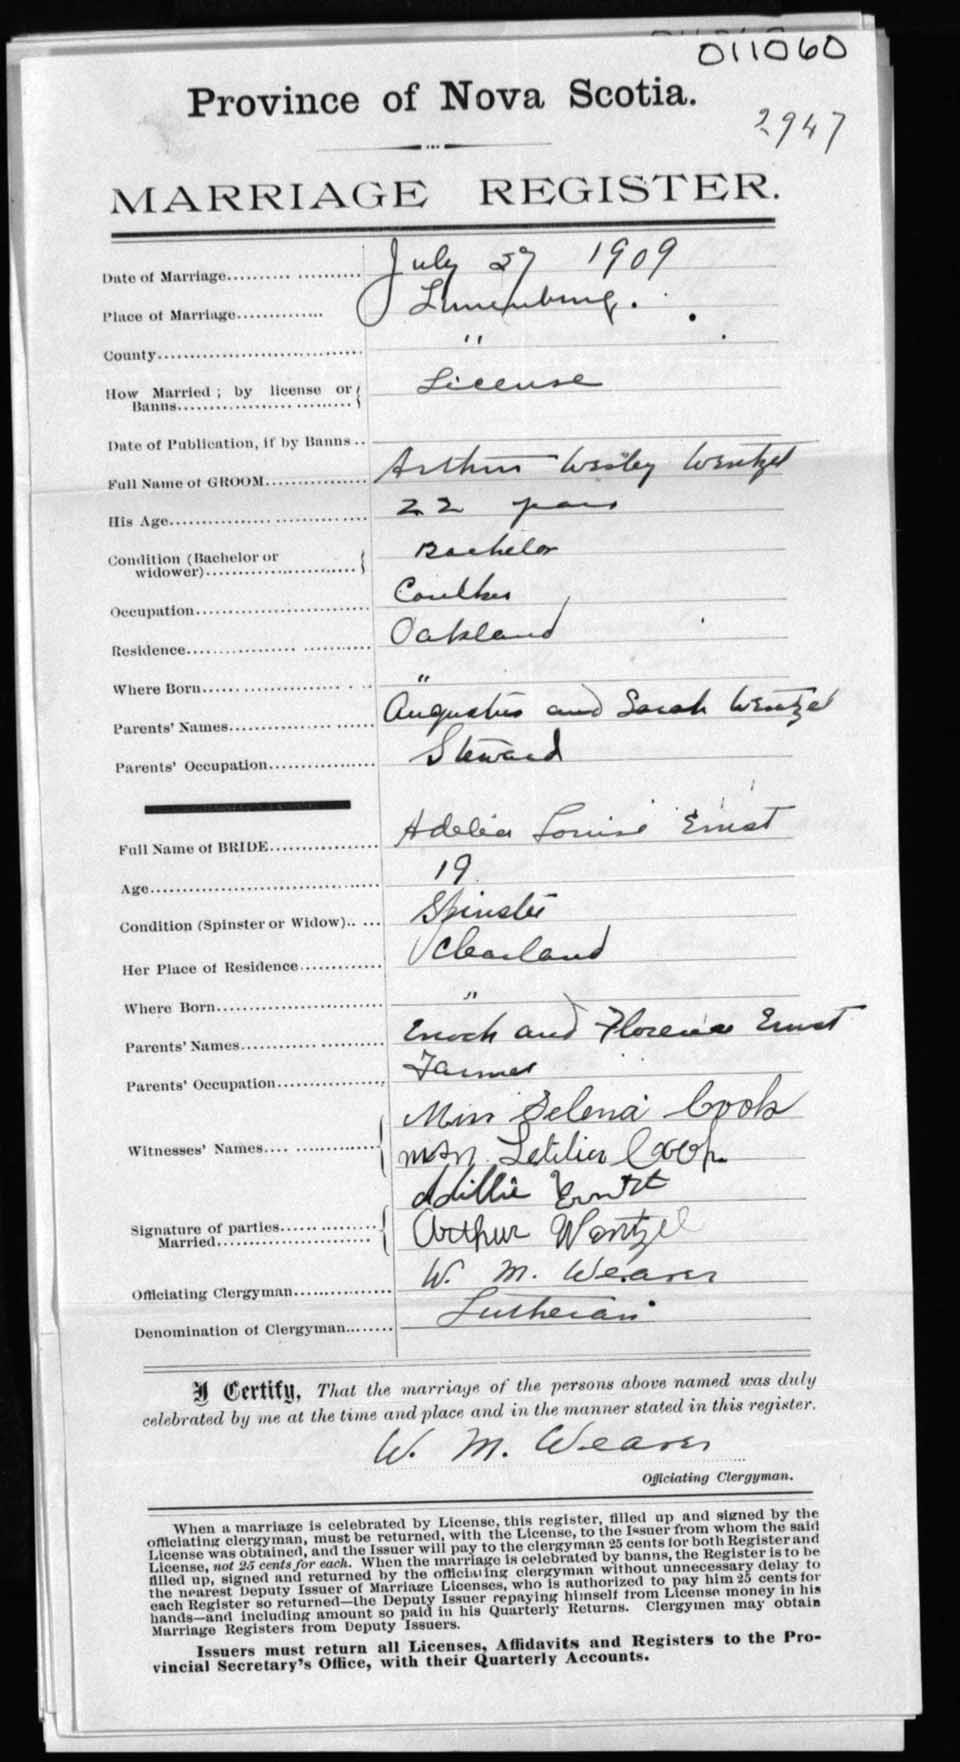 011060
Province of Nova Scotia.
2947
MARRIAGE REGISTER.
Date of Marriage.................... July 27 1909
Place of Marriage.............. Lunenburg.
County................................ "
How Married ; by license or
Banns........................... License
Date of Publication, if by Banns ..
Full Name of GROOM................ Arthur Wesley Wentzel
His Age............................... 22 years
Condition (Bachelor or
widower)........................ Bachelor
Occupation...........................
Residence............................ Oakland
Where Born........................ "
Parents' Names..................... Augustus and Sarah Wentzel
Parents' Occupation................. Steward
Full Name of BRIDE................. Adelia Louise Ernst
Age................................... 19
Condition (Spinster or Widow)...... Spinster
Her Place of Residence............. Clearland
Where Born......................... "
Parents' Names..................... Enoch and Florence Ernst
Parents' Occupation................ Farmer
Witnesses' Names................... Miss Selena Cook
Letitia
Signature of parties
Married........................... Lillie Ernst
Arthur Wentzel
Officiating Clergyman............... W. M. Weaver
Denomination of Clergyman........ Lutheran
I Certify, That the marriage of the persons above named was duly
celebrated by me at the time and place and in the manner stated in this register.
W. M. Weaver
Officiating Clergyman.
When a marriage is celebrated by License, this register, filled up and signed by the
officiating clergyman, must be returned, with the License, to the Issuer from whom the said
License was obtained, and the Issuer will pay to the clergyman 25 cents for both Register and
License, not 25 cents for each. When the marriage is celebrated by banns, the Register is to be
filled up, signed and returned by the officiating clergyman without unnecessary delay to
the nearest Deputy Issuer of Marriage Licenses, who is authorized to pay him 25 cents for
each Register so returned—the Deputy Issuer repaying himself from License money in his
hands—and including amount so paid in his Quarterly Returns. Clergymen may obtain
Marriage Registers from Deputy Issuers.
Issuers must return all Licenses, Affidavits and Registers to the Pro-
vincial Secretary's Office, with their Quarterly Accounts.